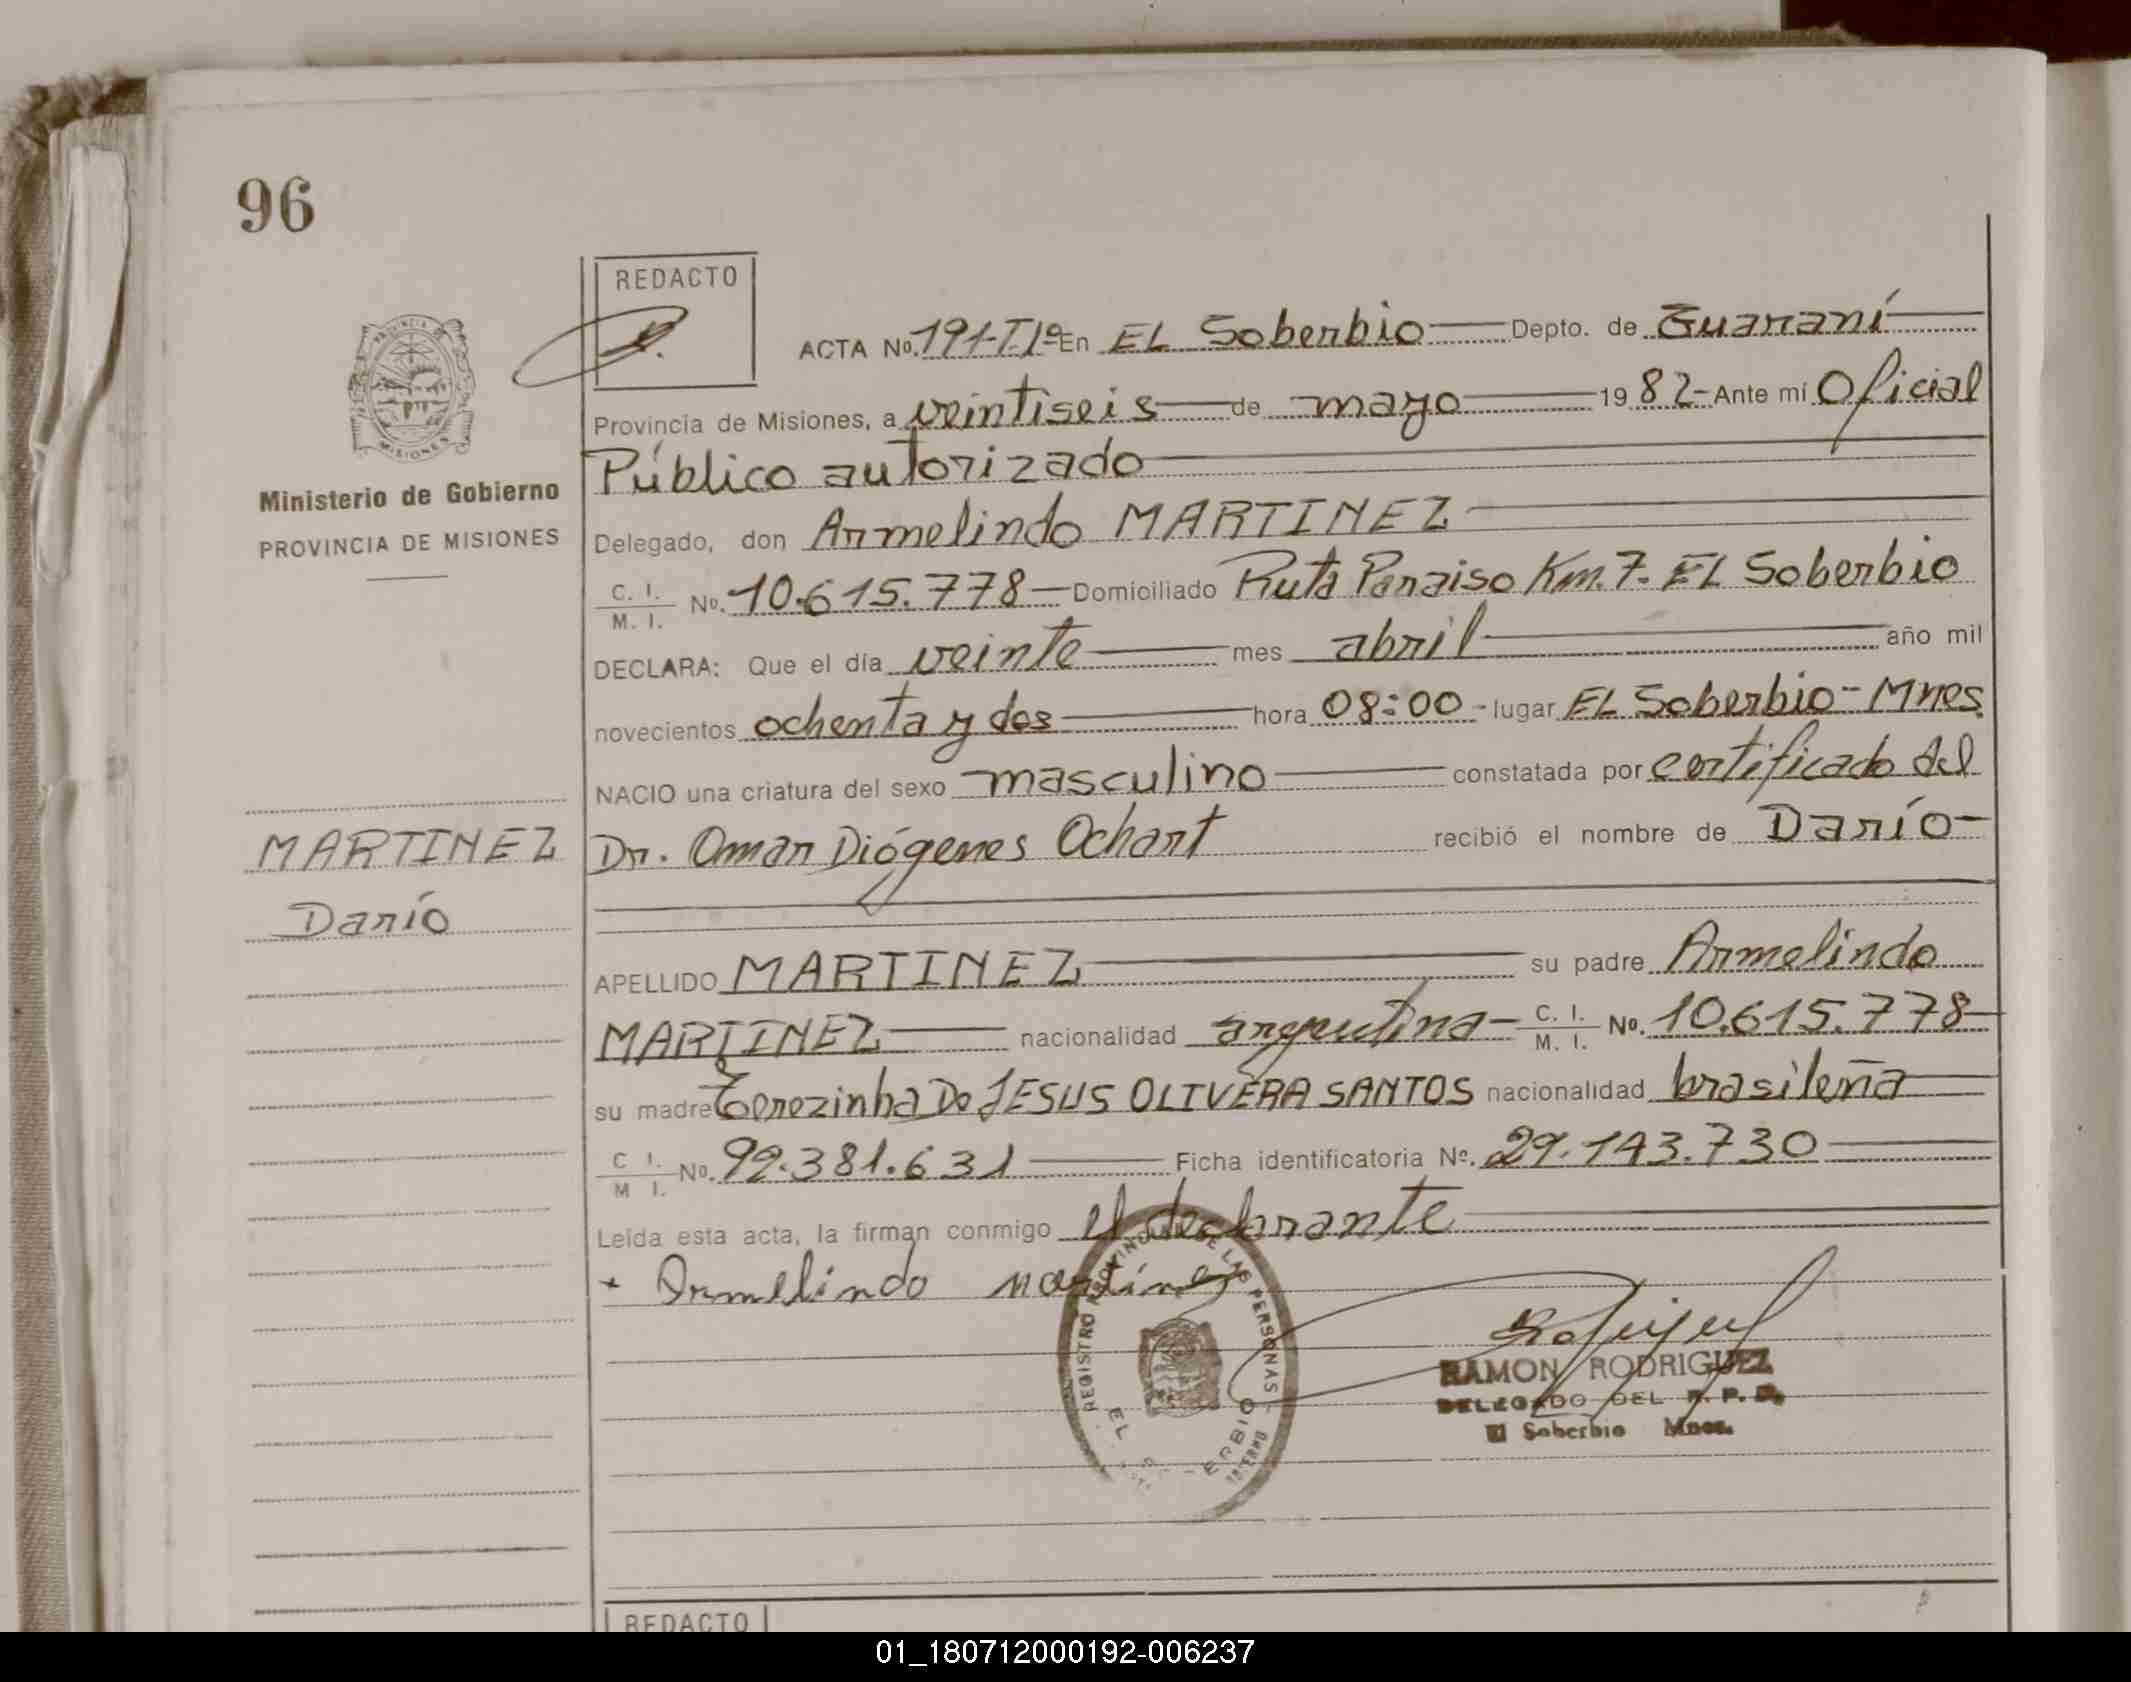 96
REDACTO
ACTA No. 191-T.Iº En EL Soberbio Depto. de Guaraní
Provincia de Misiones, a veintiseis de mayo 1982- Ante mí Oficial
Público autorizado
Ministerio de Gobierno
PROVINCIA DE MISIONES
Delegado, don Armelindo MARTINEZ
C. I. / M. I. No. 10.615.778 - Domiciliado Ruta Paraiso Km. 7. EL Soberbio
DECLARA: Que el día veinte mes abril año mil
novecientos ochenta y dos hora 08:00 - lugar EL Soberbio - Mnes.
NACIO una criatura del sexo masculino constatada por certificado del
Dr. Omar Diógenes Ochart recibió el nombre de Darío-
MARTINEZ
Darío
APELLIDO MARTINEZ su padre Armelindo
MARTINEZ nacionalidad argentina - C. I. / M. I. No. 10.615.778
su madre Terezinha De JESUS OLIVERA SANTOS nacionalidad brasileña
C I. / M I. No. 92.381.631 Ficha identificatoria Nº. 29.143.730
Leída esta acta, la firman conmigo el declarante
Armelindo martinez
REGISTRO PROVINCIAL DE LAS PERSONAS
EL ERBIO
RAMON RODRIGUEZ
DELEGADO DEL R. P. P.
El Soberbio Mnes.
REDACTO
01_180712000192-006237